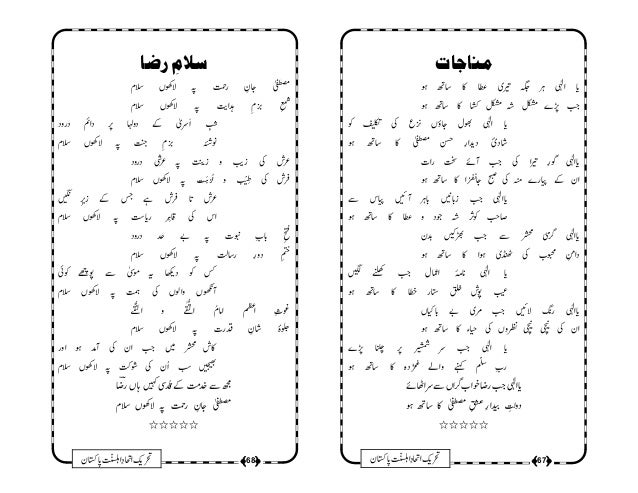 مناجات
یا الٰہی ہر جگہ تیری عطا کا ساتھ ہو
جب پڑے مشکل شہ مشکل کشا کا ساتھ ہو
یا الٰہی بھول جاؤں نزع کی تکلیف کو
شادیٔ دیدار حسن مصطفیٰ کا ساتھ ہو
یاالٰہی گور تیرا کی جب آئے سخت رات
ان کے پیارے منہ کی صبح جانفزا کا ساتھ ہو
یاالٰہی جب زبانیں باہر آئیں پیاس سے
صاحب کوثر شہ جود و عطا کا ساتھ ہو
یاالٰہی گرمیٔ محشر سے جب بھڑکیں بدن
دامن محبوب کی ٹھنڈی ہوا کا ساتھ ہو
یا الٰہی نامۂ اعمال جب کھلنے لگیں
عیب پوش خلق ستار خطا کا ساتھ ہو
یاالٰہی رنگ لائیں جب مری بے باکیاں
ان کی نیچی نیچی نظروں کی حیاء کا ساتھ ہو
یا الٰہی جب سر شمشیر پر چلنا پڑے
رب سلّم کہنے والے غمزدہ کا ساتھ ہو
یاالٰہی جب رضا خواب گراں سے سر اٹھائے
دولتِ بیدار عشقِ مصطفیٰ کا ساتھ ہو
☆☆☆☆☆
تحریک اتحاد اہلسنّت پاکستان
67
سلامِ رضا
مصطفیٰ جانِ رحمت پہ لاکھوں سلام
شمعِ بزمِ ہدایت پہ لاکھوں سلام
شبِ اَسریٰ کے دولہا پر دائم درود
نوشۂ بزمِ جنت پہ لاکھوں سلام
عرش کی زیب و زینت پہ عرشی درود
فرش کی طیب و نُزہت پہ لاکھوں سلام
عرش تا فرش ہے جس کے زیرِ نگیں
اس کی قاہر ریاست پہ لاکھوں سلام
فتحِ بابِ نبوت پہ بے حد درود
ختمِ دورِ رسالت پہ لاکھوں سلام
کس کو دیکھا یہ موسیٰ سے پوچھے کوئی
آنکھوں والوں کی ہمت پہ لاکھوں سلام
غوثِ اعظم امامُ التُّقےٰ و النُّقےٰ
جلوۂ شانِ قدرت پہ لاکھوں سلام
کاش محشر میں جب ان کی آمد ہو اور
بھیجیں سب اُن کی شوکت پہ لاکھوں سلام
مجھ سے خدمت کے قدسی کہیں ہاں رضا
مصطفیٰ جانِ رحمت پہ لاکھوں سلام
☆☆☆☆☆
تحریک اتحاد اہلسنّت پاکستان
68